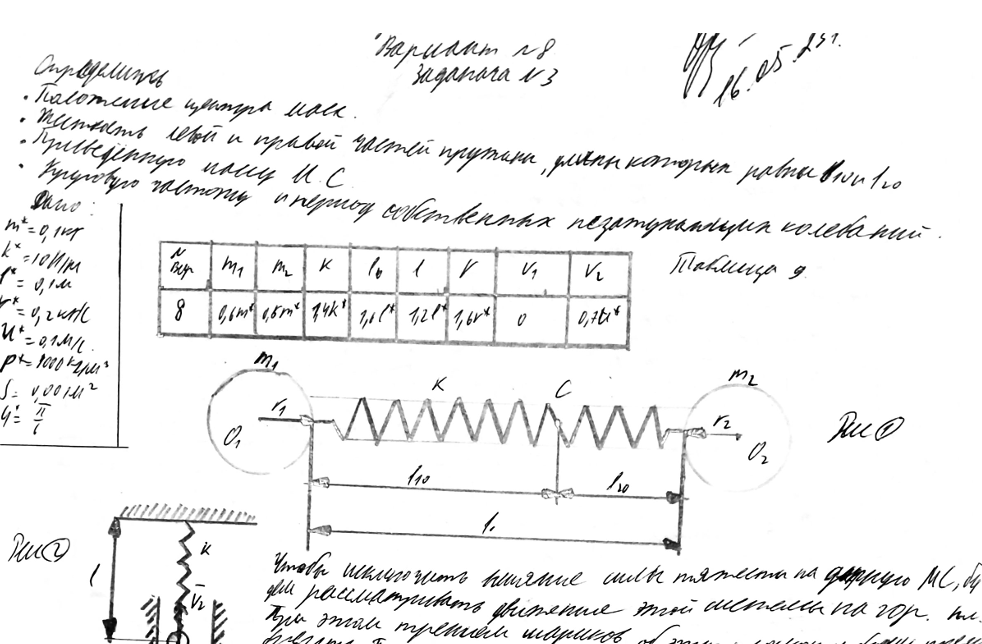 Вариант №8
Задача №3
16.05.
Определить
• Положение центра масс.
• Жесткость левой и правой частей пружины, длины которых равны l10 и l20
• Приведенную массу М.С.
• Круговую частоту и период собственных незатухающих колебаний.
Дано:
m* = 0,1кг
k* = 10Н/м
l* = 0,1м
= 0,2
U* = 0,1м/с
ρ* = кг/м³
S = 0,001м²
π
Таблица 9
№ вар m1 m2 K l0 l r V1 V2
8 0,6m* 0,5m* 1,4k* 1,6l* 1,2l* 1,6r* 0 0,7U*
m1 K C m2
r1 r2
O1 O2
Рис ①
l10 l20
l0
Рис ②
K
l
V2
Чтобы исключить влияние силы тяжести на данную МС, бу
дем рассматривать движение этой системы на гор. пл.
При этом трением шариков